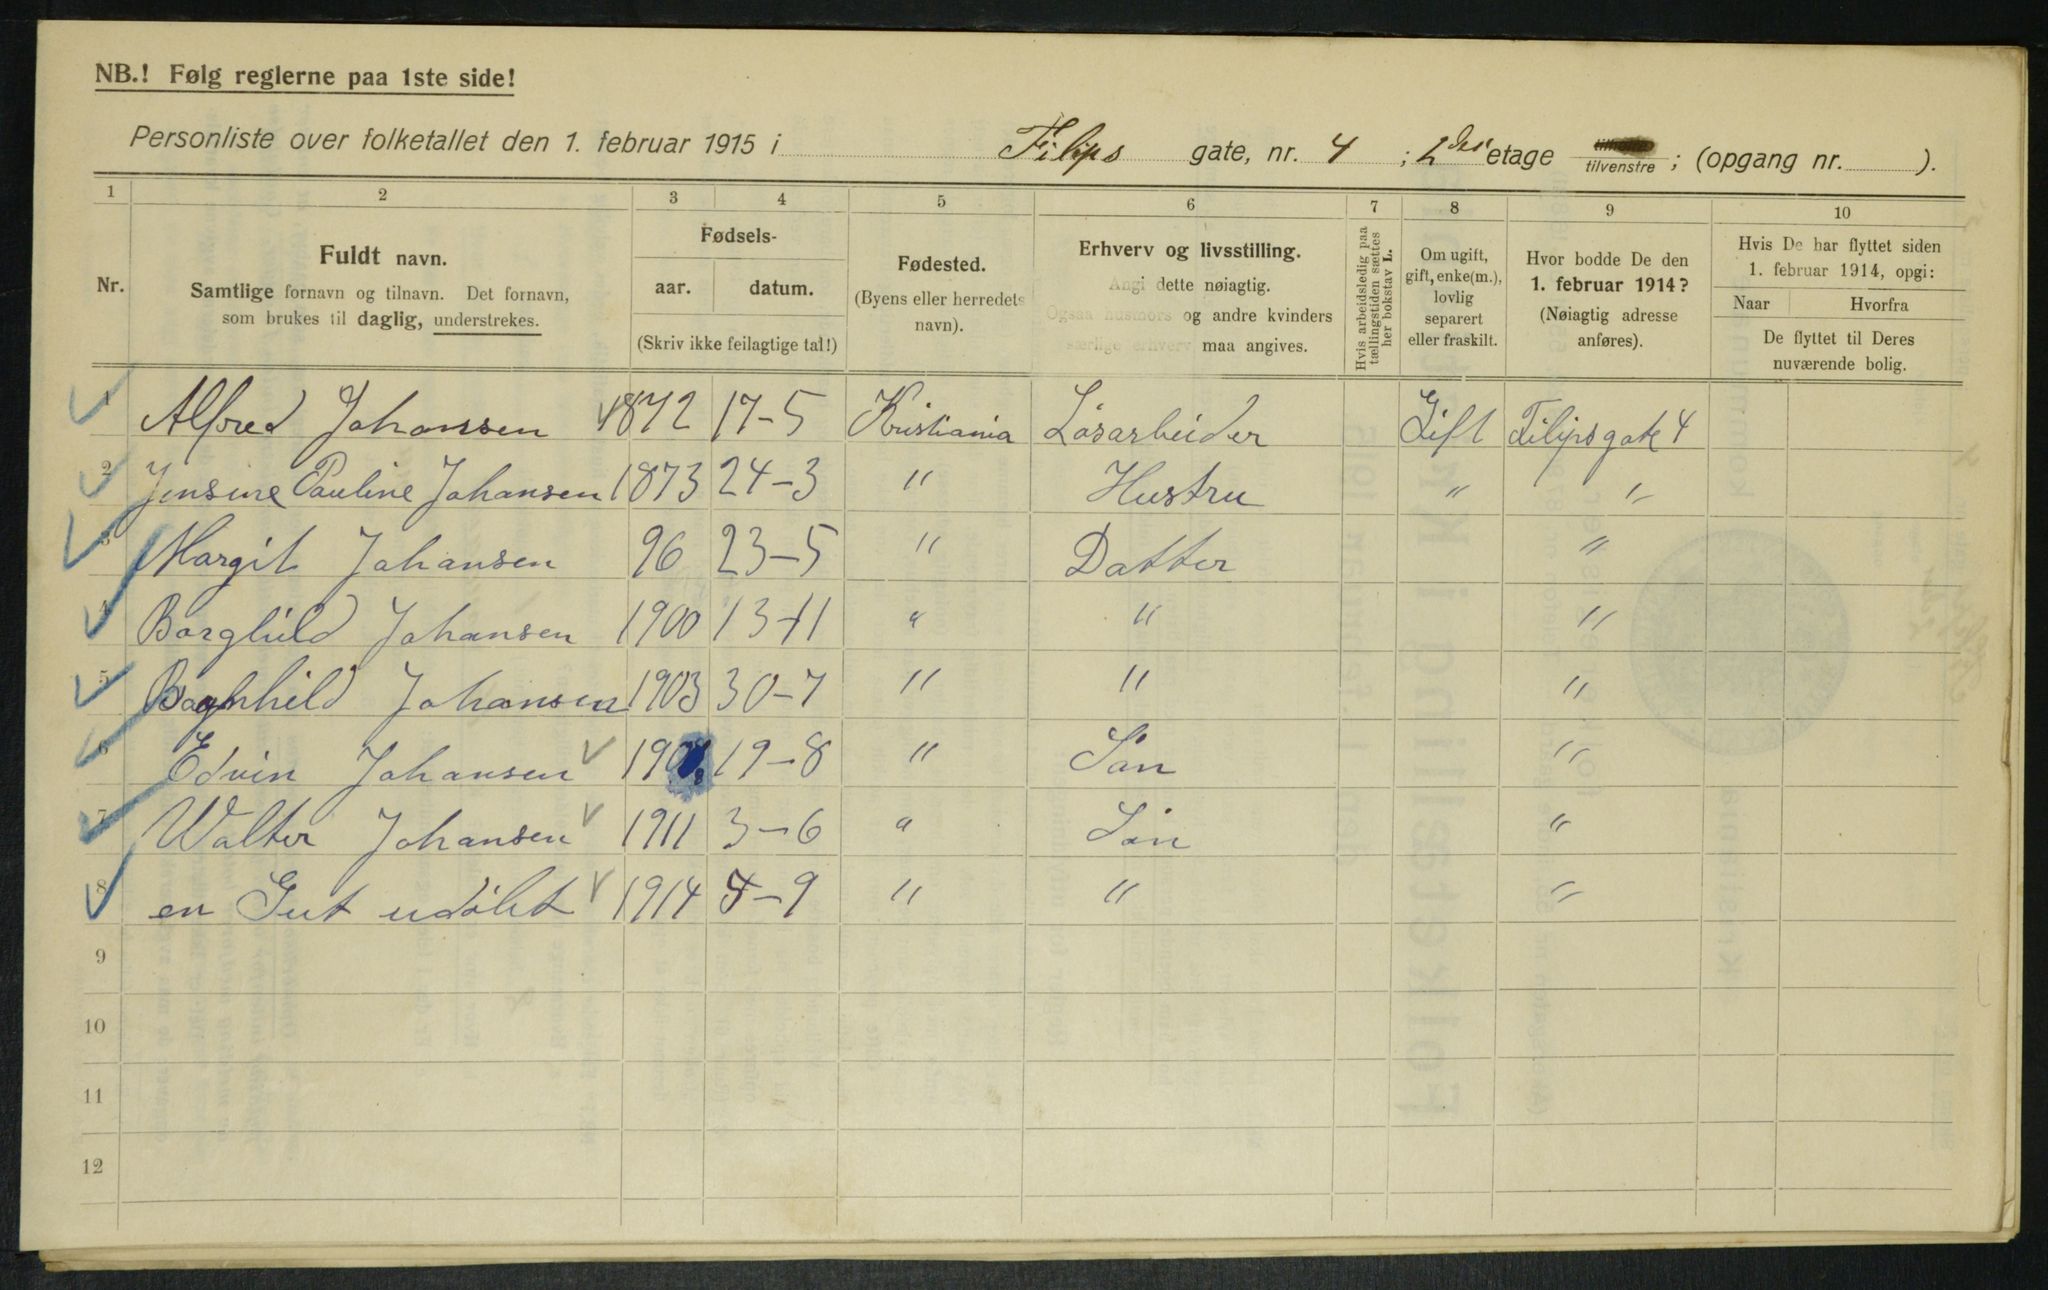 NB.! Følg reglerne paa 1ste side!
Personliste over folketallet den 1. februar 1915 i Filips gate, nr. 4 ; 2den etage tilvenstre ; (opgang nr. ).
1 2 3 4 5 6 7 8 9 10
Nr.
Fuldt navn.
Samtlige fornavn og tilnavn. Det fornavn,
som brukes til daglig, understrekes.
Fødsels-
aar. datum.
(Skriv ikke feilagtige tal!)
Fødested.
(Byens eller herredets
navn).
Erhverv og livsstilling.
Angi dette nøiagtig.
Ogsaa husmors og andre kvinders
særlige erhverv maa angives.
Hvis arbeidsledig paa
tællingstiden sættes
her bokstav L.
Om ugift,
gift, enke(m.),
lovlig
separert
eller fraskilt.
Hvor bodde De den
1. februar 1914?
(Nøiagtig adresse
anføres).
Hvis De har flyttet siden
1. februar 1914, opgi:
Naar Hvorfra
De flyttet til Deres
nuværende bolig.
1 Alfred Johansen 1872 17-5 Kristiania Løsarbeider Gift Filipsgate 4
2 Jensine Pauline Johansen 1873 24-3 " Hustru " "
3 Margit Johansen 96 23-5 " Datter "
4 Borghild Johansen 1900 13-11 " " "
5 Johansen 1903 30-7 " " "
6 Edvin Johansen 19-8 " Søn "
7 Walter Johansen 1911 3-6 " Søn "
8 en Gut udøbt 1914 -9 " " "
9
10
11
12